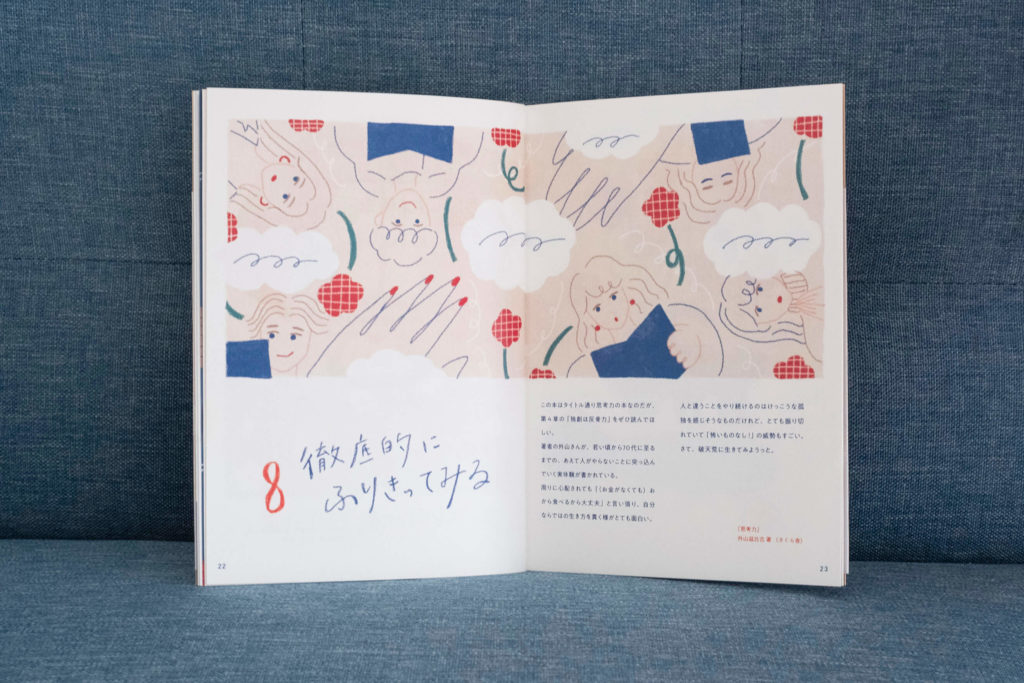 8
徹底的に
ふりきってみる
この本はタイトル通り思考力の本なのだが、
第4章の「独創は反骨力」をぜひ読んでほ
しい。
著者の外山さんが、若い頃から70代に至る
までの、あえて人がやらないことに突っ込ん
でいく実体験が書かれている。
周りに心配されても「（お金がなくても）お
から食べるから大丈夫」と言い張り、自分
ならではの生き方を貫く様がとても面白い。
人と違うことをやり続けるのはけっこうな孤
独を感じそうなものだけれど、とても振り切
れていて「怖いものなし！」の威勢もすごい。
さて、破天荒に生きてみようっと。
『思考力』
外山滋比古 著 （さくら舎）
22
23